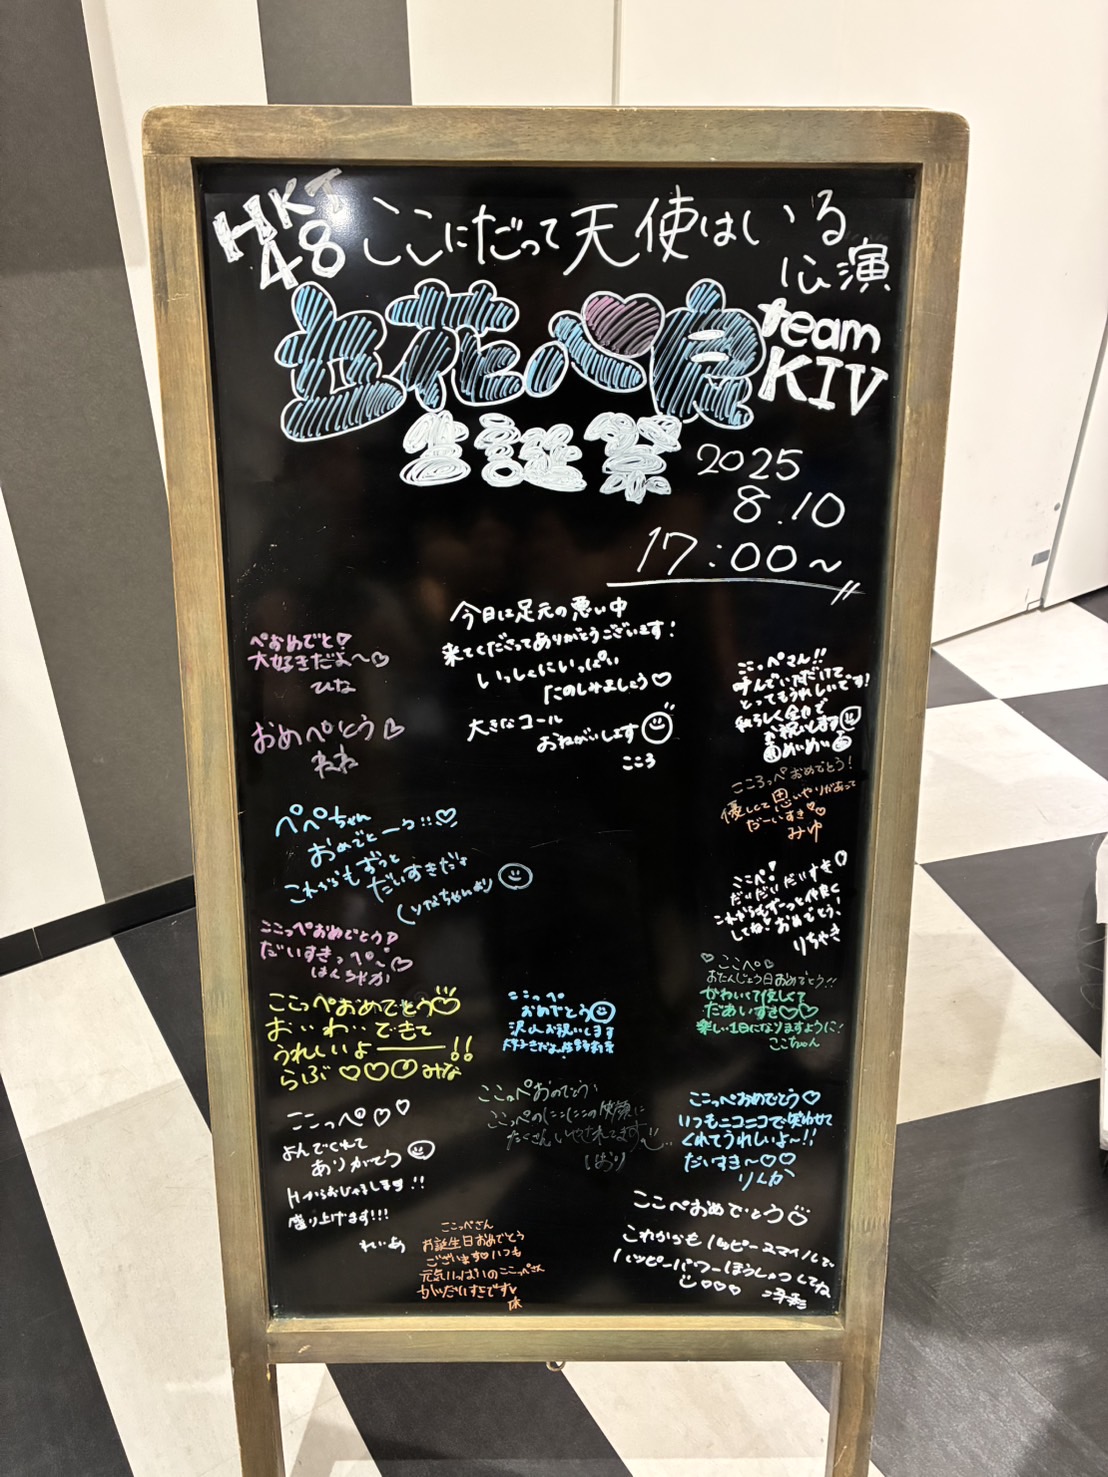 HKT48
ここにだって天使はいる
公演
立花心良
team
KIV
生誕祭
2025
8.10
17:00〜
今日は足元の悪い中
来てくださってありがとうございます！
いっしょにいっぱい
たのしみましょう♡
大きなコール
おねがいします
こころ
ぺおめでと♡
大好きだよ〜♡
ひな
おめぺとう♡
ねね
ぺぺちゃん
おめでとーう!!♡
これからもずっと
だいすきだよ
りなちゃんより
ここっぺおめでとう
だいすきっぺ〜♡
ここっぺおめでとう♡
お・い・わ・い・できて
うれしいよ――!!
らぶ♡♡♡みな
ここっぺ♡♡
よんでくれて
ありがとう
Hからおじゃまします!!
盛り上げます!!!
れいあ
ここっぺさん
お誕生日おめでとう
ございます♡いつも
元気いっぱいのここっぺさん
がだいすきです♡
ここっぺ
おめでとう
沢山お祝いします
ここっぺおめでとう
ここっぺのにこにこの笑顔に
たくさんいやされてます
しおり
こっぺさん!!
呼んでいただけて
とってもうれしいです!
私らしく全力で
お祝いします
めいめい
こころっぺおめでとう!
優しくて思いやりがあって
だーいすき♡
みゆ
ここぺ!
だいだいだいすき♡
これからもずーっと仲良く
してね!おめでとう!
りちゃき
♡ここぺ♡
おたんじょう日おめでとう!!
かわいくて優しくて
だあいすき♡♡
楽しい1日になりますように!
ここちゃん
ここっぺおめでとう♡
いつもニコニコで笑わせて
くれてうれしいよ〜!!
だいすき〜♡♡
りんか
ここぺおめでとう♡
これからもハッピースマイルで
ハッピーパワーほうしゃつしてね
♡♡♡